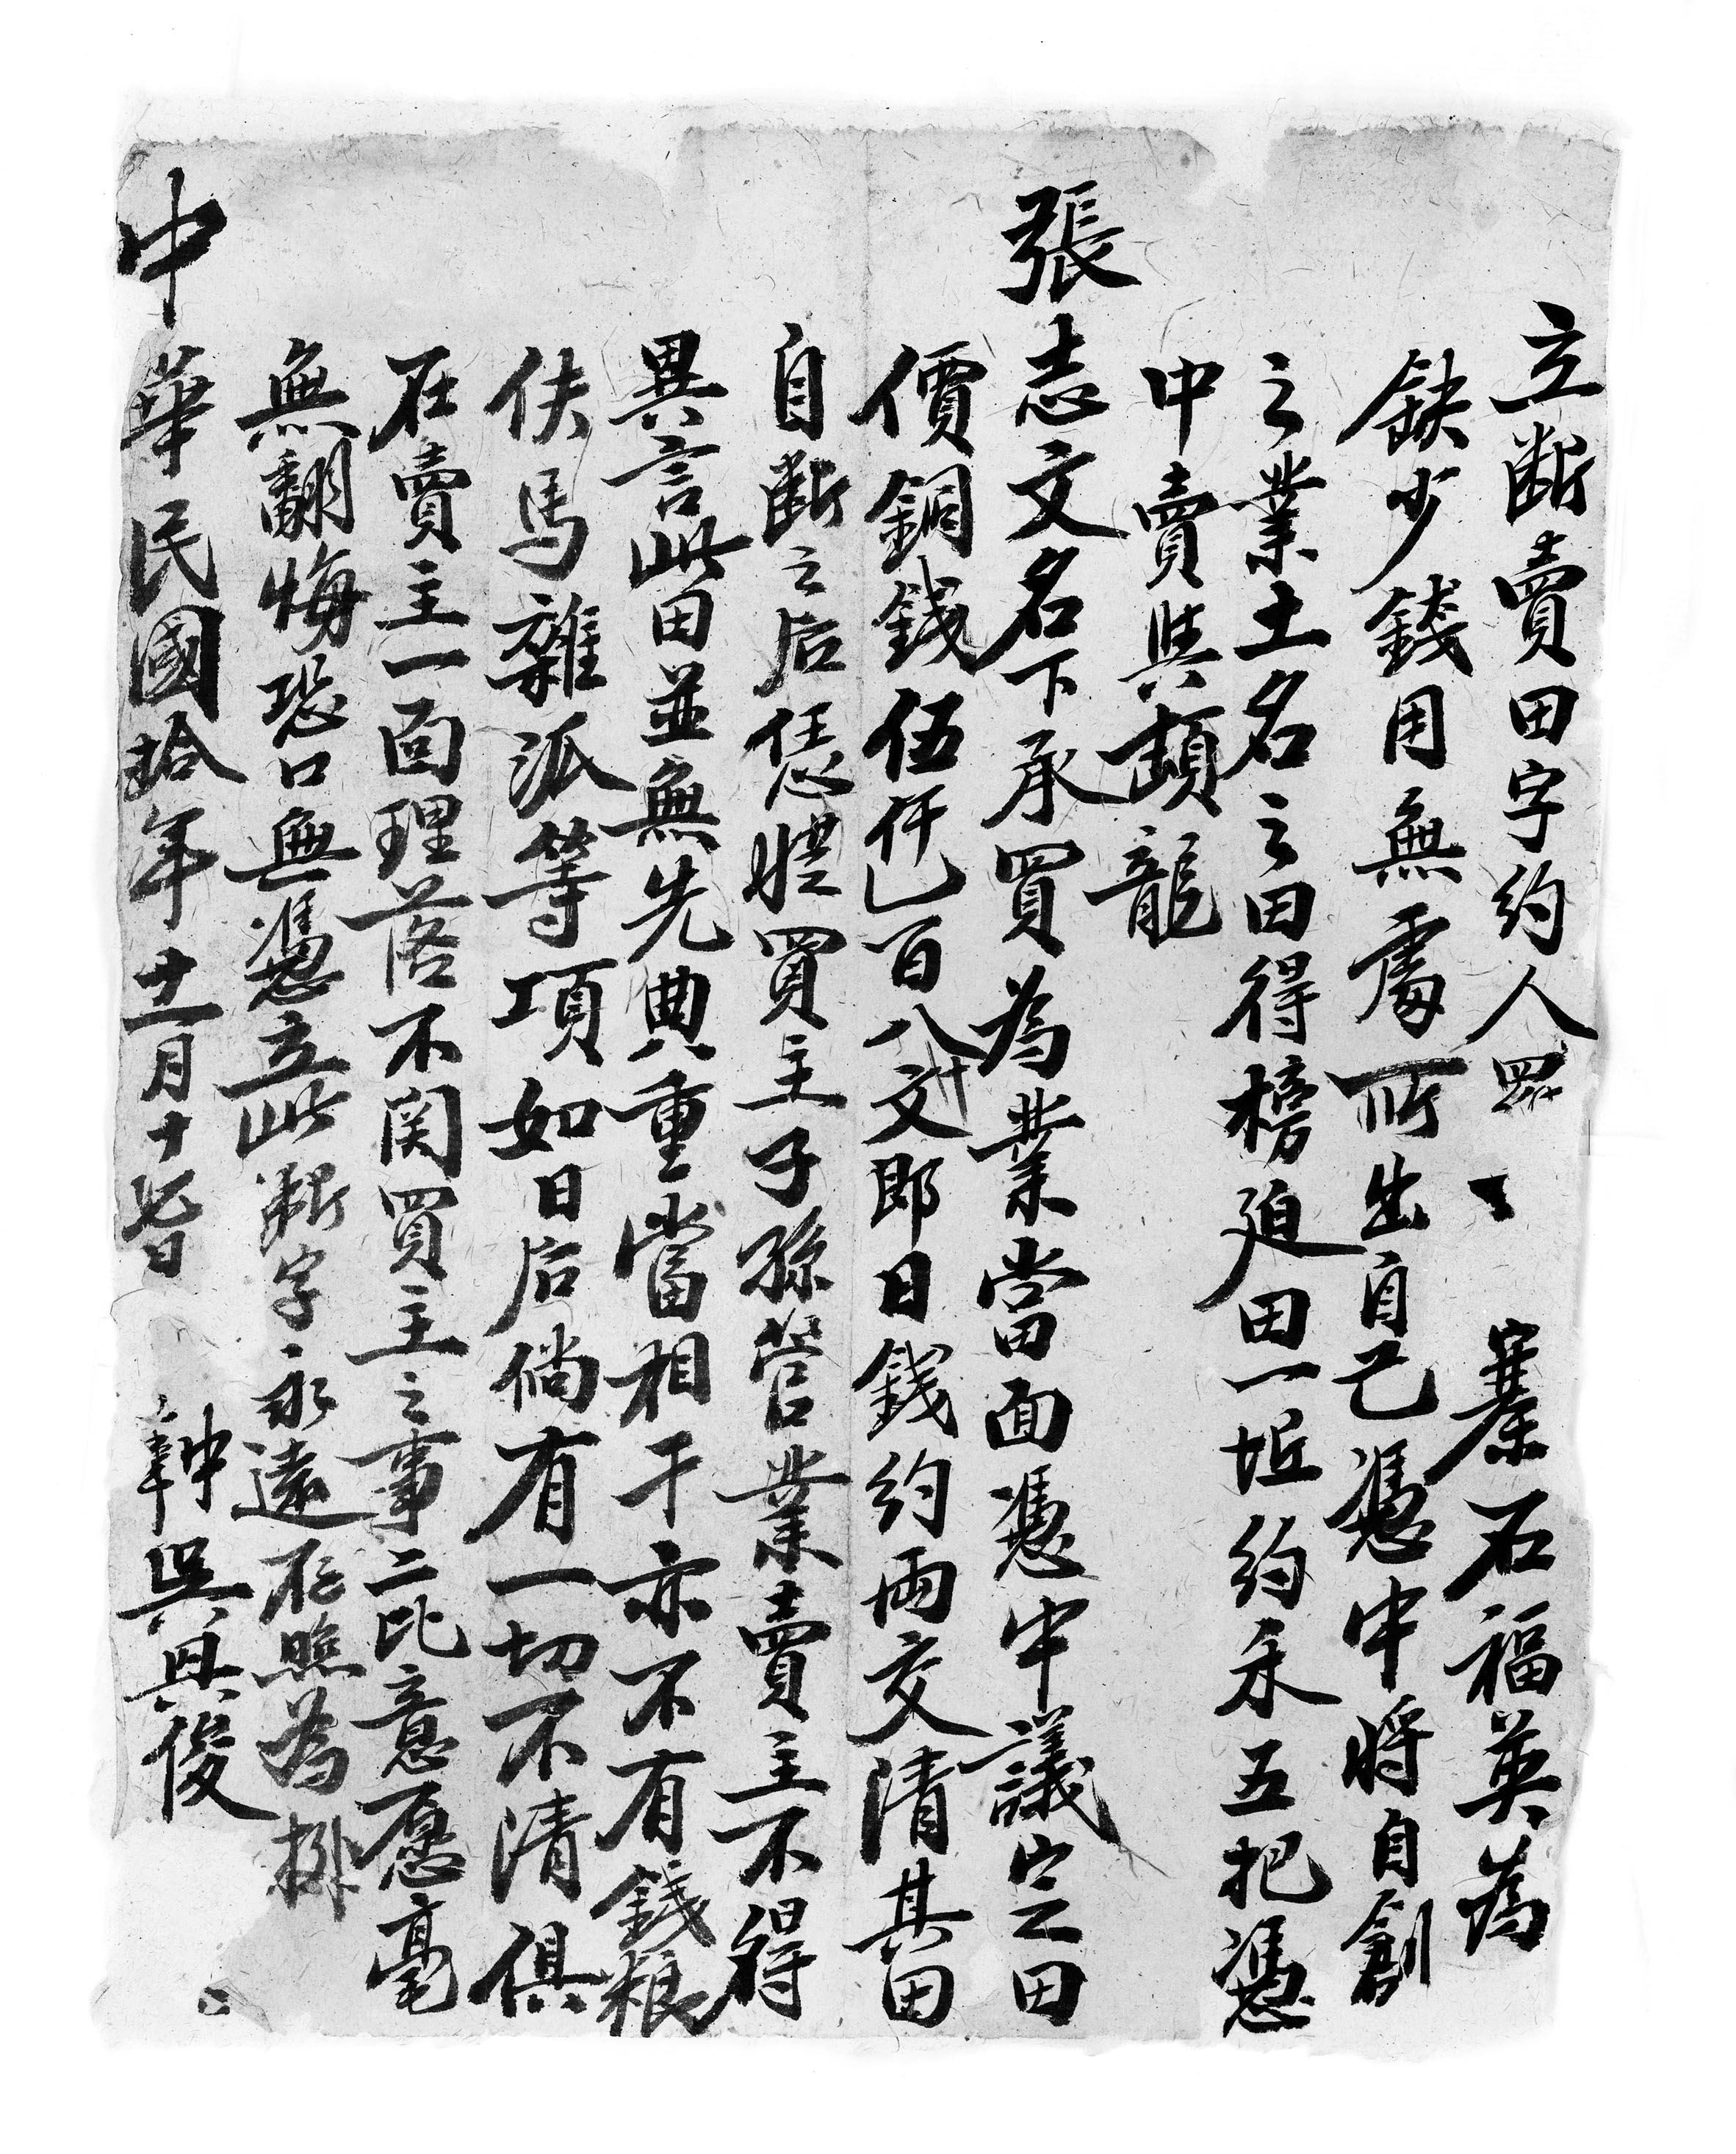 立断賣田字約人 寨石福英為
缺少錢用無處所出自己憑中將自創
之業土名之田得榜廹田一坵約禾五把憑
中賣與頭龍
張志文名下承買為業當面憑中議定田
價銅錢伍仟 百八十文即日錢約両交清其田
自断之后恁體買主子孫管業賣主不得
異言此田並無先典重當相干亦不有錢粮
伕馬雜派等項如日后倘有一切不清俱
在賣主一面理落不関買主之事二比意愿毫
無翻悔恐口無憑立此断字永遠存照為据
中華民國拾年 月十 日 中 吳具俊